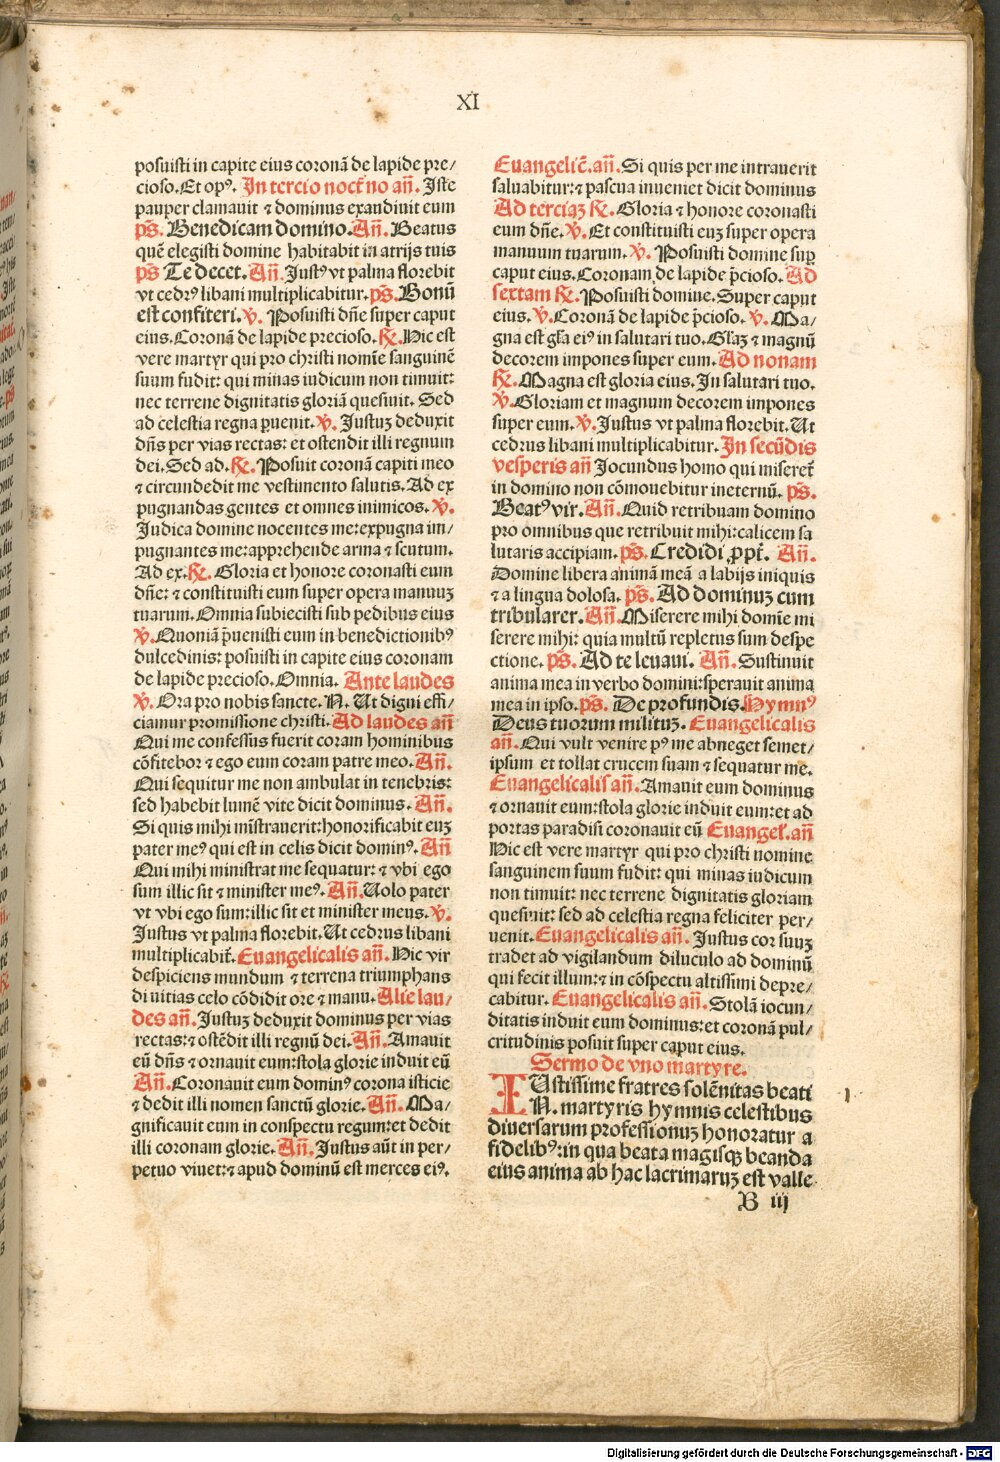 XI
posuisti in capite eius coronā de lapide pre/
cioso. Et opꝰ. In tercio noct̄no añ. Iste
pauper clamauit ⁊ dominus exaudiuit eum
pṡ. Benedicam domino. Añ. Beatus
quē elegisti domine habitabit in atrijs tuis
pṡ Te decet. Añ. Justꝰ vt palma florebit
vt cedrꝰ libani multiplicabitur. pṡ. Bonū
est confiteri. v̇. Posuisti dñe super caput
eius. Coronā de lapide precioso. R̄. Hic est
vere martyr qui pro christi nomīe sanguinē
suum fudit: qui minas iudicum non timuit:
nec terrene dignitatis gloriā quesiuit. Sed
ad celestia regna ꝑuenit. v̇. Justuꝫ deduxit
dñs per vias rectas: et ostendit illi regnum
dei. Sed ad. R̄. Posuit coronā capiti meo
⁊ circundedit me vestimento salutis. Ad ex
pugnandas gentes et omnes inimicos. v̇.
Judica domine nocentes me: expugna im/
pugnantes me: apprehende arma ⁊ scutum.
Ad ex. R̄. Gloria et honore coronasti eum
dñe: ⁊ constituisti eum super opera manuuꝫ
tuarum. Omnia subiecisti sub pedibus eius
v̇. Quoniā p̄uenisti eum in benedictionibꝰ
dulcedinis: posuisti in capite eius coronam
de lapide precioso. Omnia. Ante laudes
v̇. Ora pro nobis sancte. N. Ut digni effi/
ciamur promissione christi. Ad laudes añ
Qui me confessus fuerit coram hominibus
cōfitebor ⁊ ego eum coram patre meo. Añ.
Qui sequitur me non ambulat in tenebris:
sed habebit lumē vite dicit dominus. Añ.
Si quis mihi mīstrauerit: honorificabit euꝫ
pater meꝰ qui est in celis dicit dominꝰ. Añ
Qui mihi ministrat me sequatur: ⁊ vbi ego
sum illic sit ⁊ minister meꝰ. Añ. Uolo pater
vt vbi ego sum: illic sit et minister meus. v̇.
Justus vt palma florebit. Ut cedrus libani
multiplicabit̄. Euangelicalis añ. Hic vir
despiciens mundum ⁊ terrena triumphans
diuitias celo cōdidit ore ⁊ manu. Alie lau/
des añ. Justuꝫ deduxit dominus per vias
rectas: ⁊ ostēdit illi regnū dei. Añ. Amauit
eū dñs ⁊ ornauit eum: stola glorie induit eū
Añ. Coronauit eum dominꝰ corona isticie
⁊ dedit illi nomen sanctū glorie. Añ. Ma/
gnificauit eum in conspectu regum: et dedit
illi coronam glorie. Añ. Justus aūt in per/
petuo viuet: ⁊ apud dominū est merces eiꝰ.
Euangelic̄. añ. Si quis per me intrauerit
saluabitur: ⁊ pascua inueniet dicit dominus
Ad terciaꝫ R̄. Gloria ⁊ honore coronasti
eum dñe. v̇. Et constituisti euꝫ super opera
manuum tuarum. v̇. Posuisti domine suꝑ
caput eius. Coronam de lapide p̄cioso. Ad
sextam R̄. Posuisti domine. Super caput
eius. v̇. Coronā de lapide p̄cioso. v̇. Ma/
gna est gl̄a eiꝰ in salutari tuo. Gl̄aꝫ ⁊ magnū
decorem impones super eum. Ad nonam
R̄. Magna est gloria eius. In salutari tuo.
v̇. Gloriam et magnum decorem impones
super eum. v̇. Justus vt palma florebit. Ut
cedrus libani multiplicabitur. In secūdis
vesperis añ Jocundus homo qui miseret̄
in domino non cōmouebitur ineternū. pṡ.
Beatꝰ vir. Añ. Quid retribuam domino
pro omnibus que retribuit mihi: calicem sa
lutaris accipiam. pṡ. Credidi ꝓpt̄. Añ.
Domine libera animā meā a labijs iniquis
⁊ a lingua dolosa. pṡ. Ad dominuꝫ cum
tribularer. Añ. Miserere mihi domīe mi
serere mihi: quia multū repletus sum despe
ctione. pṡ. Ad te leuaui. Añ. Sustinuit
anima mea in verbo domini: sperauit anima
mea in ipso. pṡ. De profundis. Hymnꝰ
Deus tuorum milituꝫ. Euangelicalis
añ. Qui vult venire pꝰ me abneget semet/
ipsum et tollat crucem suam ⁊ sequatur me.
Euangelicalis añ. Amauit eum dominus
⁊ ornauit eum: stola glorie induit eum: et ad
portas paradisi coronauit eū Euangel̄. añ
Hic est vere martyr qui pro christi nomine
sanguinem suum fudit: qui minas iudicum
non timuit: nec terrene dignitatis gloriam
quesiuit: sed ad celestia regna feliciter per/
uenit. Euangelicalis añ. Justus cor suuꝫ
tradet ad vigilandum diluculo ad dominū
qui fecit illum: ⁊ in cōspectu altissimi depre/
cabitur. Euangelicalis añ. Stolā iocun/
ditatis induit eum dominus: et coronā pul/
critudinis posuit super caput eius.
Sermo de vno martyre.
IUstissime fratres solēnitas beati
N. martyris hymnis celestibus
diuersarum professionuꝫ honoratur a
fidelibꝰ: in qua beata magisqꝫ beanda
eius anima ab hac lacrimaruꝫ est valle
B iij
Digitalisierung gefördert durch die Deutsche Forschungsgemeinschaft - DFG